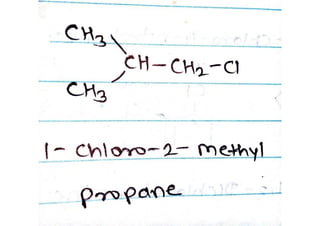 CH3
CH-CH2-Cl
CH3
1-Chloro-2-methyl
propane